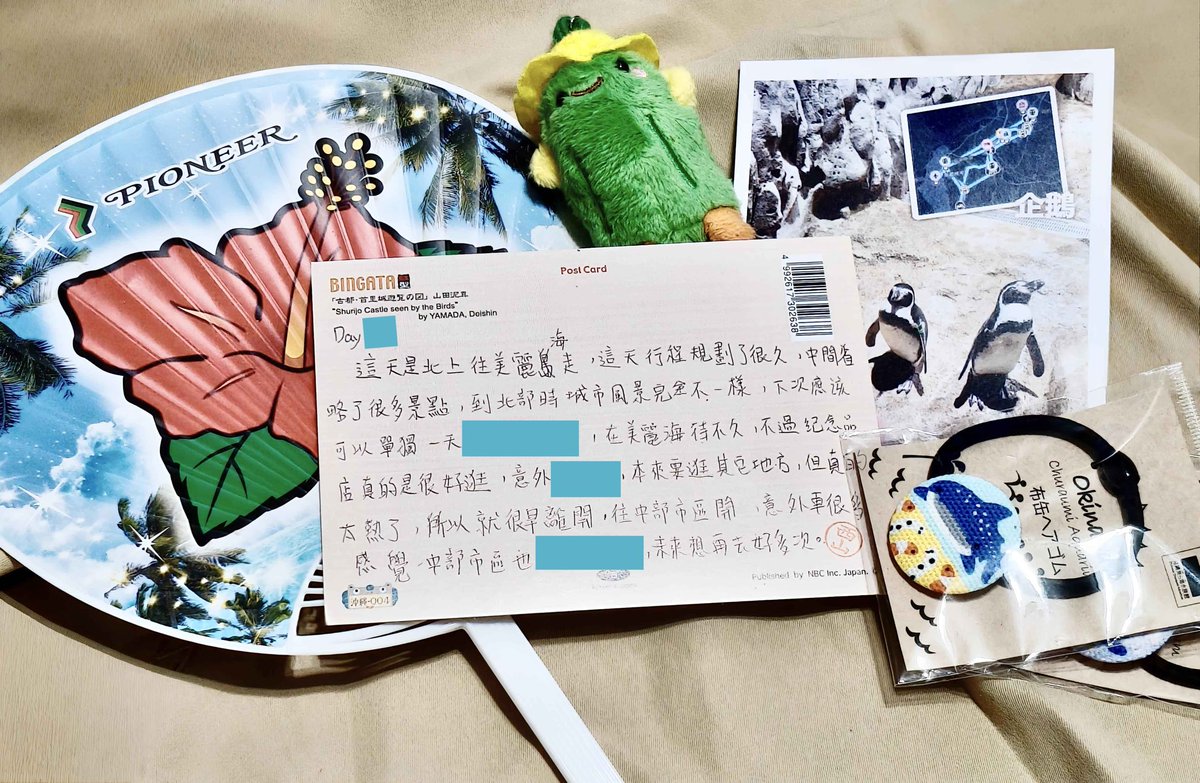 PIONEER
企鵝
BINGATA
Post Card
「古都・首里城遊覧の図」 山田泥真
"Shurijo Castle seen by the Birds"
by YAMADA, Deishin
4992617302638
Day
海
這天是北上往美麗走，這天行程規劃了很久，中間省
略了很多景點，到北部時城市風景完全不一樣，下次應該
可以單獨一天，在美麗海待不久，不過紀念品
店真的是很好逛，意外，本來要逛其它地方，但真的
太熱了，所以就很早離開，往中部市區開，意外車很多
感覺中部市區也，未來想再去好多次。
沖繩-004
Published by NBC Inc. Japan.
Okina
Churaumi Aquari
布缶ヘアゴム